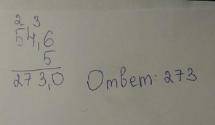 2 3
54,6
5
273,0
Ответ: 273